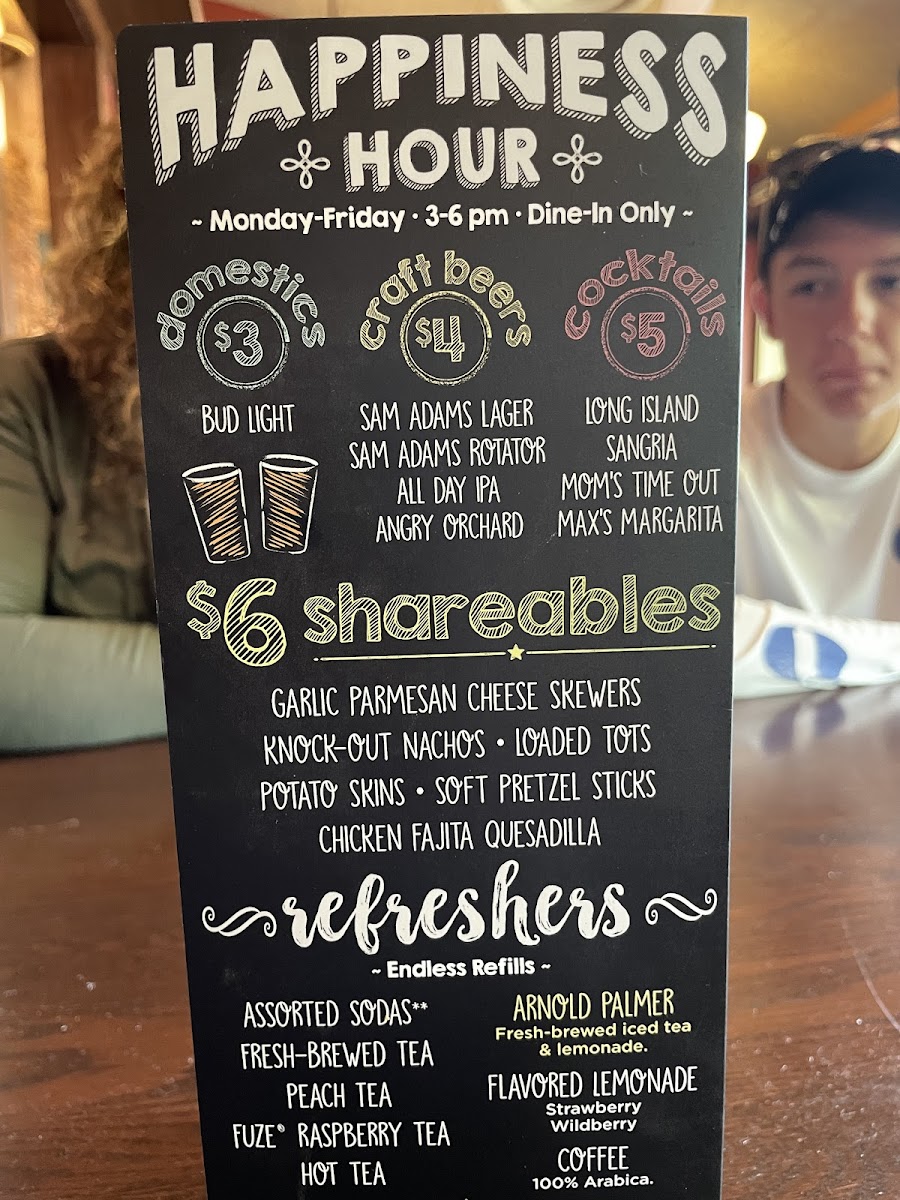 HAPPINESS
HOUR
~ Monday-Friday · 3-6 pm · Dine-In Only ~
domestics
$3
BUD LIGHT
craft beers
$4
SAM ADAMS LAGER
SAM ADAMS ROTATOR
ALL DAY IPA
ANGRY ORCHARD
cocktails
$5
LONG ISLAND
SANGRIA
MOM'S TIME OUT
MAX'S MARGARITA
$6 shareables
GARLIC PARMESAN CHEESE SKEWERS
KNOCK-OUT NACHOS • LOADED TOTS
POTATO SKINS • SOFT PRETZEL STICKS
CHICKEN FAJITA QUESADILLA
refreshers
~ Endless Refills ~
ASSORTED SODAS**
FRESH-BREWED TEA
PEACH TEA
FUZE® RASPBERRY TEA
HOT TEA
ARNOLD PALMER
Fresh-brewed iced tea
& lemonade.
FLAVORED LEMONADE
Strawberry
Wildberry
COFFEE
100% Arabica.